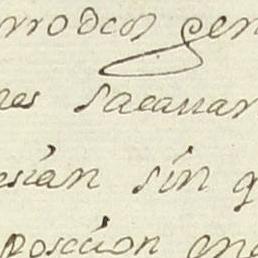 rrodos gen
nes sacauan
esian sin q
posecion